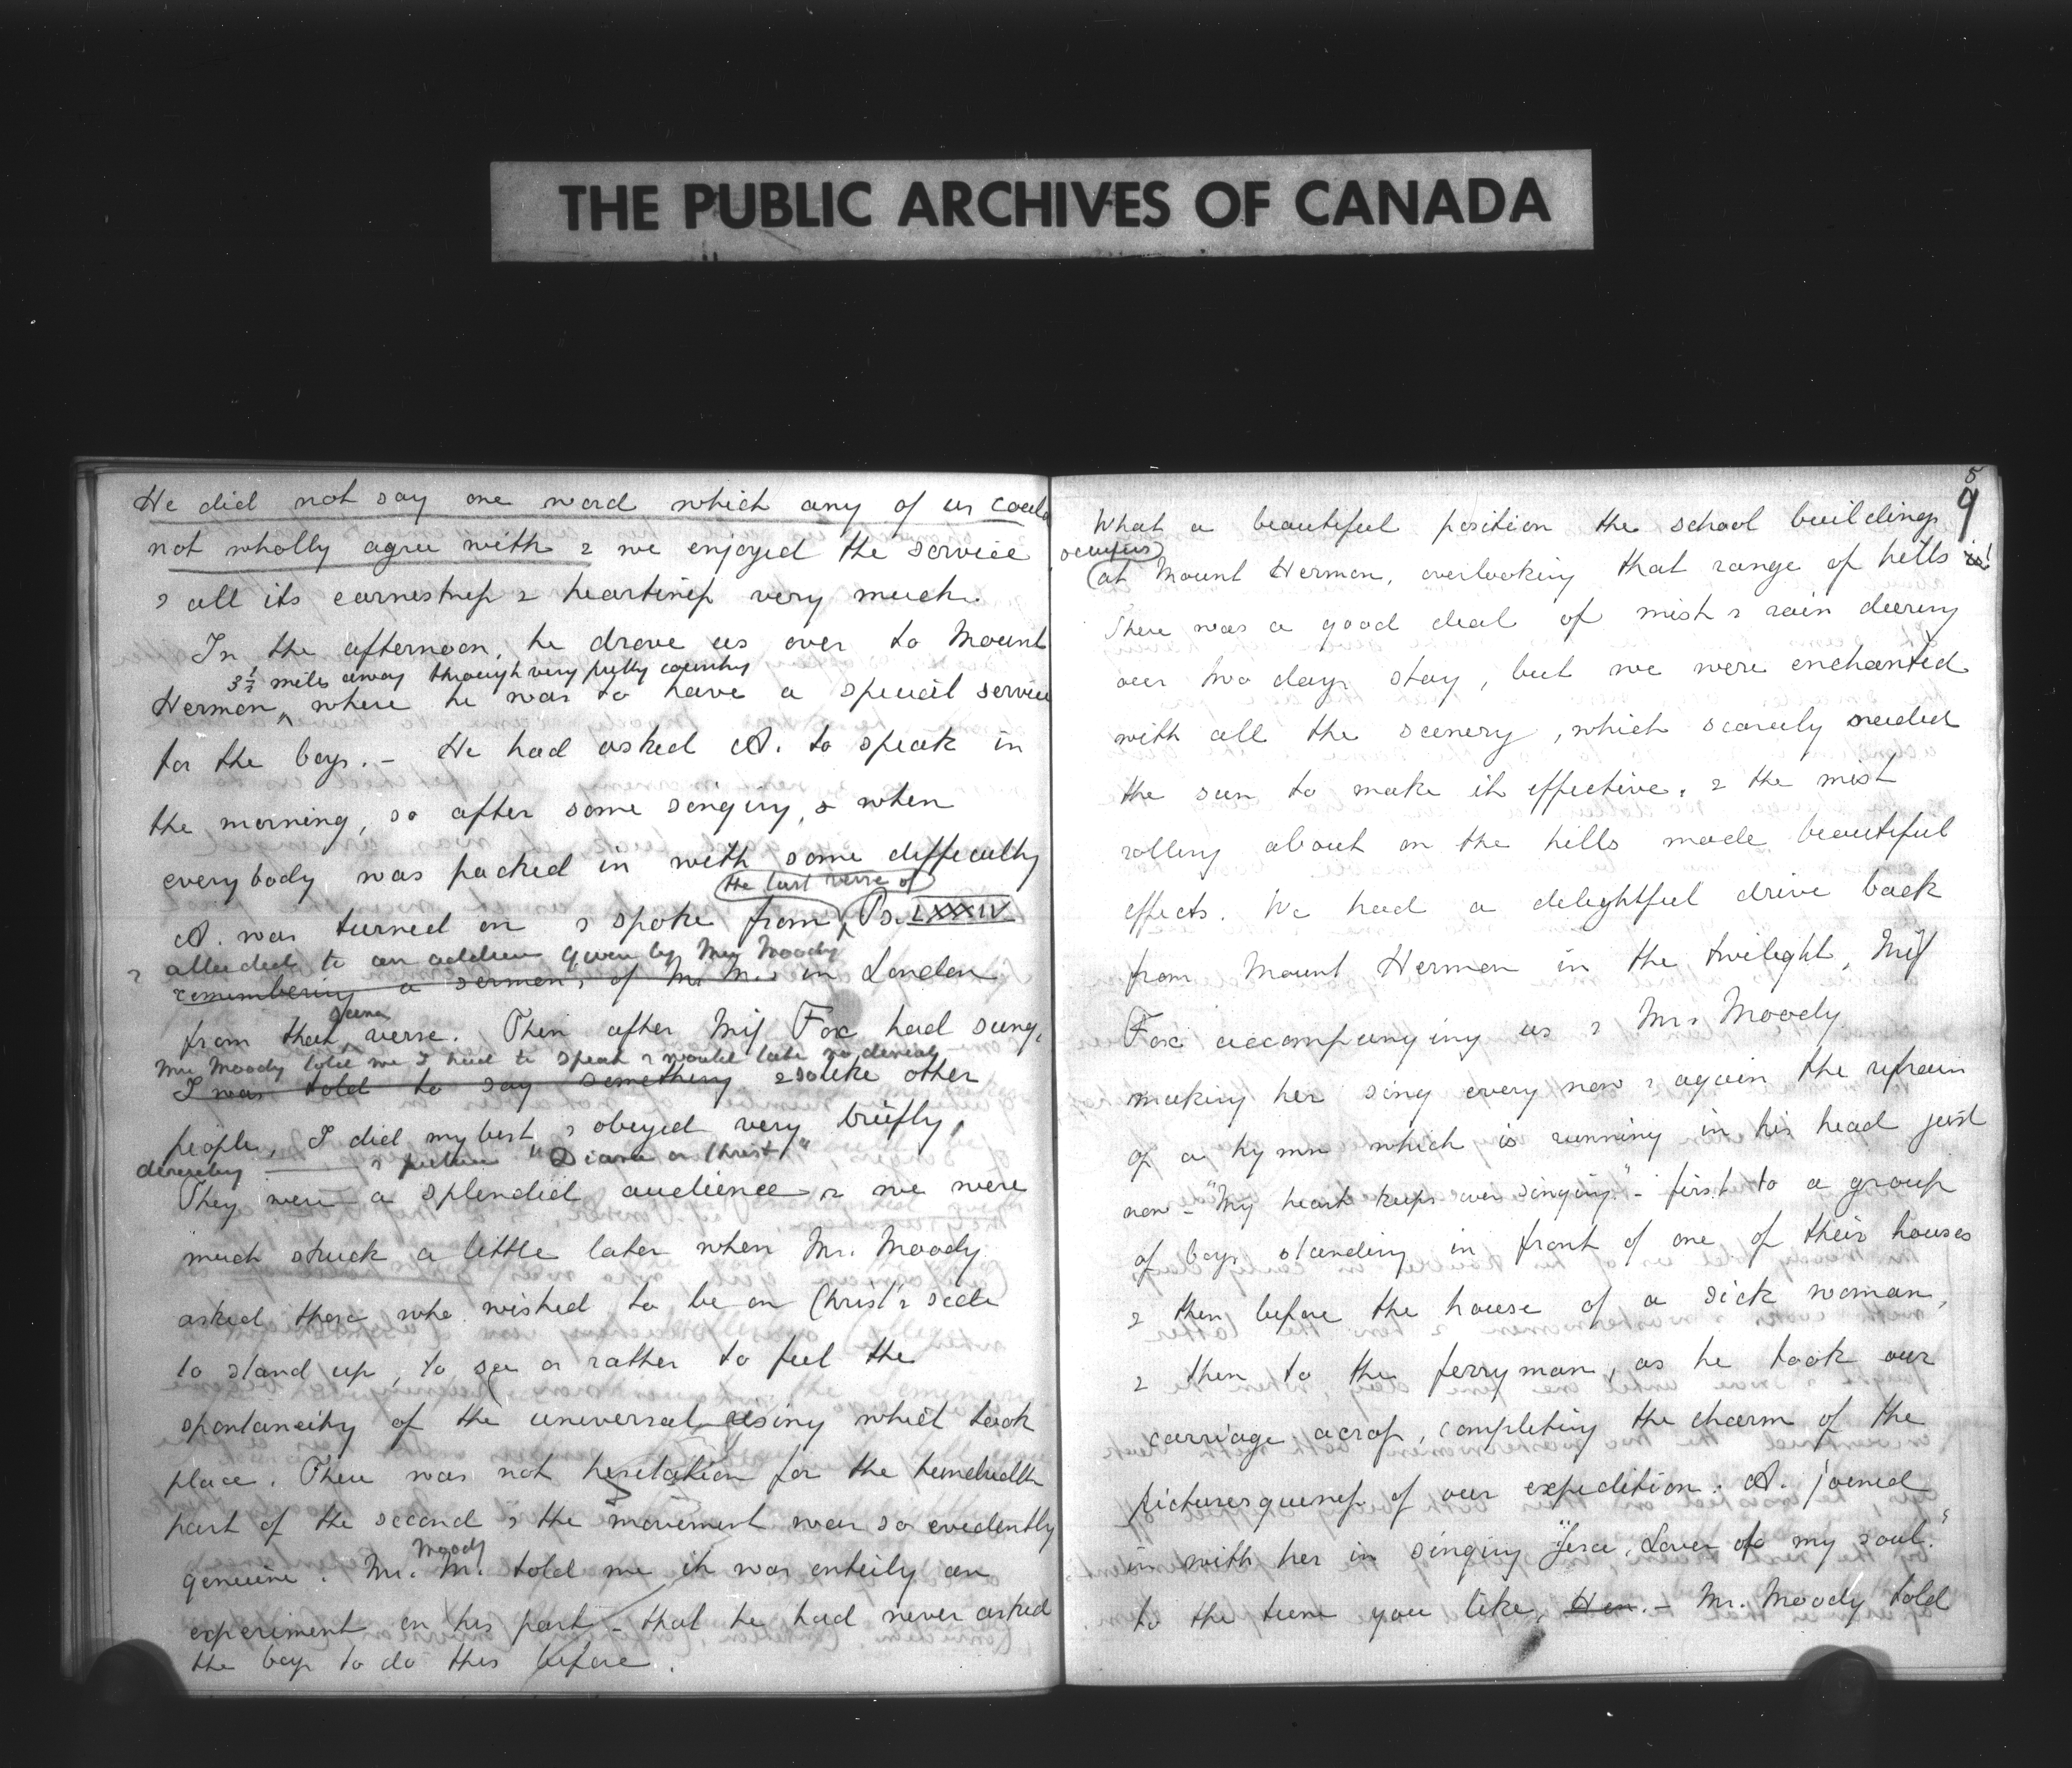 THE PUBLIC ARCHIVES OF CANADA
He did not say one word which any of us could
not wholly agree with & we enjoyed the service
& all its earnestness & heartiness very much.
In the afternoon, he drove us over to Mount
3½ miles away through very pretty country
Hermon, where he was to have a special service
for the boys. - He had asked A. to speak in
the morning, so after some singing, & when
everybody was packed in with some difficulty
the last verse of
A. was turned on & spoke from Ps. LXXXIV
& alluded to an address given by Mr Moody
remembering a sermon, of Mr M.'s in London
given
from that verse. Then after Miss Fox had sung,
Mr Moody told me I had to speak & would take no denial
I was told to say something & so like other
people, I did my best, & obeyed very briefly,
describing & picture "Diana or Christ"
They were a splendid audience & we were
much struck a little later when Mr. Moody
asked those who wished to be on Christ's side
to stand up, to see or rather to feel the
spontaneity of the universal rising which took
place. There was not hesitation for the hundredth
part of the second & the movement was so evidently
Moody
genuine. Mr. M. told me it was entirely an
experiment on his part - that he had never asked
the boys to do this before.
8
9
What a beautiful position the school buildings
occupies
at Mount Hermon, overlooking that range of hills is!
There was a good deal of mist & rain during
our two days stay, but we were enchanted
with all the scenery, which scarcely needed
the sun to make it effective, & the mist
rolling about on the hills made beautiful
effects. We had a delightful drive back
from Mount Hermon in the twilight, Miss
Fox accompanying us & Mr. Moody
making her sing every now & again the refrain
of a hymn which is running in his head just
now - "My heart keeps ever singing" - first to a group
of boys standing in front of one of their houses
& then before the house of a sick woman,
& then to the ferryman, as he took our
carriage across, completing the charm of the
picturesqueness of our expedition. A. joined
in with her in singing "Jesu, Lover of my soul."
to the tune you like, Hon. - Mr. Moody told